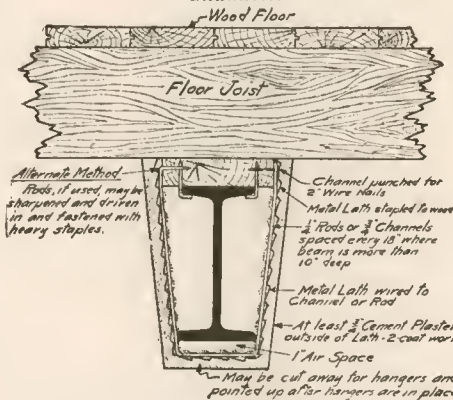 Wood Floor
Floor Joist
Alternate Method
Rods, if used, may be
sharpened and driven
in and fastened with
heavy staples.
Channel punched for
2" Wire Nails
Metal Lath stapled to wood
1/4" Rods or 3/4" Channels
spaced every 18" where
beam is more than
10" deep
Metal Lath wired to
Channel or Rod
At least 3/4" Cement Plaster
outside of Lath-2-coat work
1" Air Space
May be cut away for hangers and
pointed up after hangers are in place